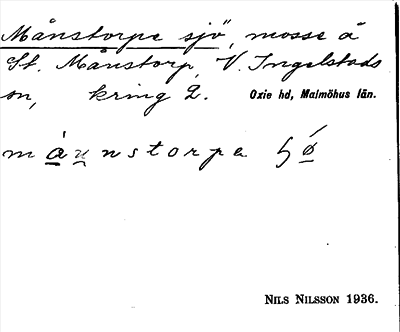 Månstorps sjö, mosse å
St. Månstorp, V. Ingelstads
sn, kring 2. Oxie hd, Malmöhus län.
måunstorpa
NILS NILSSON 1936.